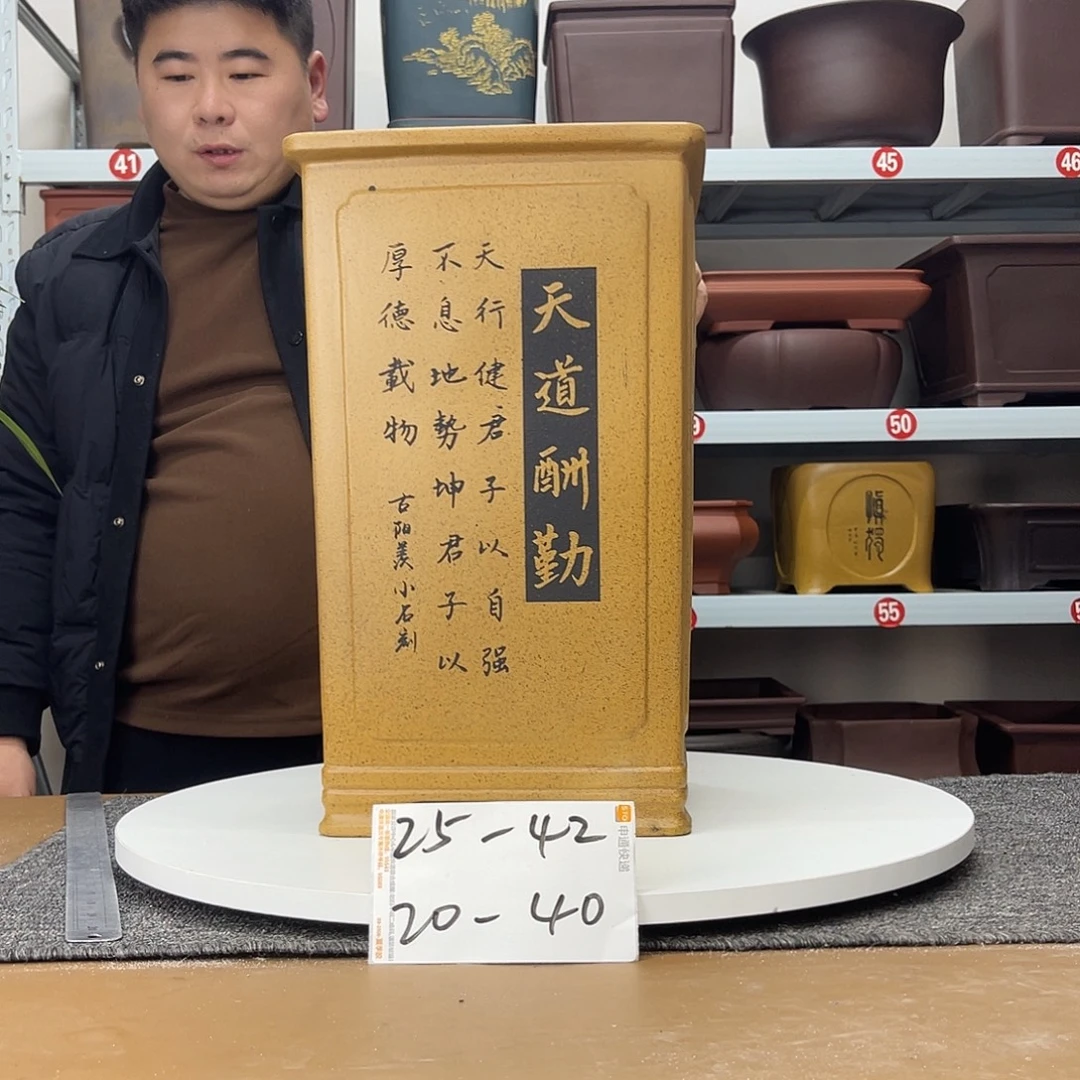 天道酬勤
天行健君子以自强
不息地势坤君子以
厚德載物
古阳羡小石刻
25-42
20-40
中通快递
41
45
46
50
55